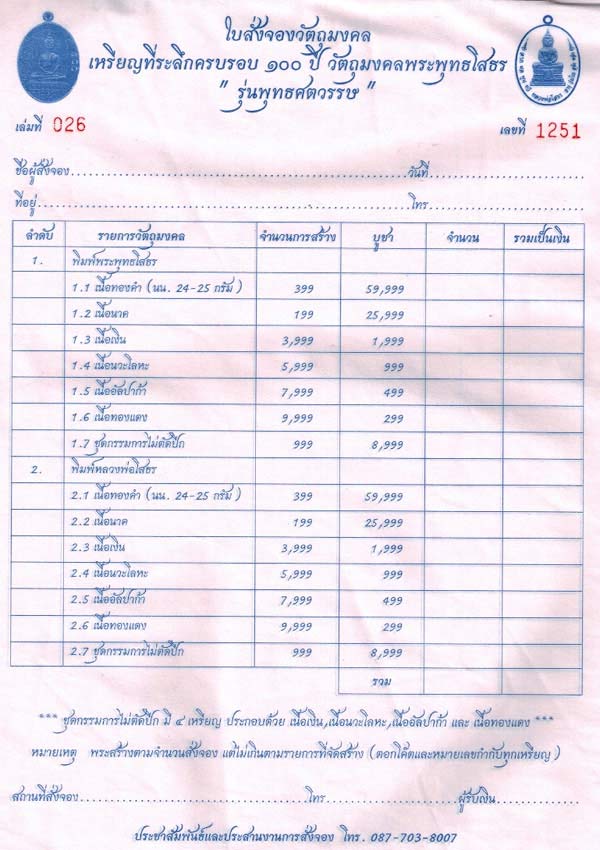 ใบสั่งจองวัตถุมงคล
เหรียญที่ระลึกครบรอบ ๑๐๐ ปี วัตถุมงคลพระพุทธโสธร
" รุ่นพุทธศตวรรษ "
เล่มที่ 026 เลขที่ 1251
ชื่อผู้สั่งจอง................วันที่................
ที่อยู่................โทร................
ลำดับ รายการวัตถุมงคล จำนวนการสร้าง บูชา จำนวน รวมเป็นเงิน
1. พิมพ์พระพุทธโสธร
1.1 เนื้อทองคำ (นน. 24-25 กรัม) 399 59,999
1.2 เนื้อนาค 199 25,999
1.3 เนื้อเงิน 3,999 1,999
1.4 เนื้อนวะโลหะ 5,999 999
1.5 เนื้ออัลปาก้า 7,999 499
1.6 เนื้อทองแดง 9,999 299
1.7 ชุดกรรมการไม่ตัดปีก 999 8,999
2. พิมพ์หลวงพ่อโสธร
2.1 เนื้อทองคำ (นน. 24-25 กรัม) 399 59,999
2.2 เนื้อนาค 199 25,999
2.3 เนื้อเงิน 3,999 1,999
2.4 เนื้อนวะโลหะ 5,999 999
2.5 เนื้ออัลปาก้า 7,999 499
2.6 เนื้อทองแดง 9,999 299
2.7 ชุดกรรมการไม่ตัดปีก 999 8,999
รวม
*** ชุดกรรมการไม่ตัดปีก มี ๔ เหรียญ ประกอบด้วย เนื้อเงิน,เนื้อนวะโลหะ,เนื้ออัลปาก้า และ เนื้อทองแดง ***
หมายเหตุ พระสร้างตามจำนวนสั่งจอง แต่ไม่เกินตามรายการที่จัดสร้าง (ตอกโค๊ตและหมายเลขกำกับทุกเหรียญ)
สถานที่สั่งจอง................โทร................ผู้รับเงิน................
ประชาสัมพันธ์และประสานงานการสั่งจอง โทร. 087-703-8007